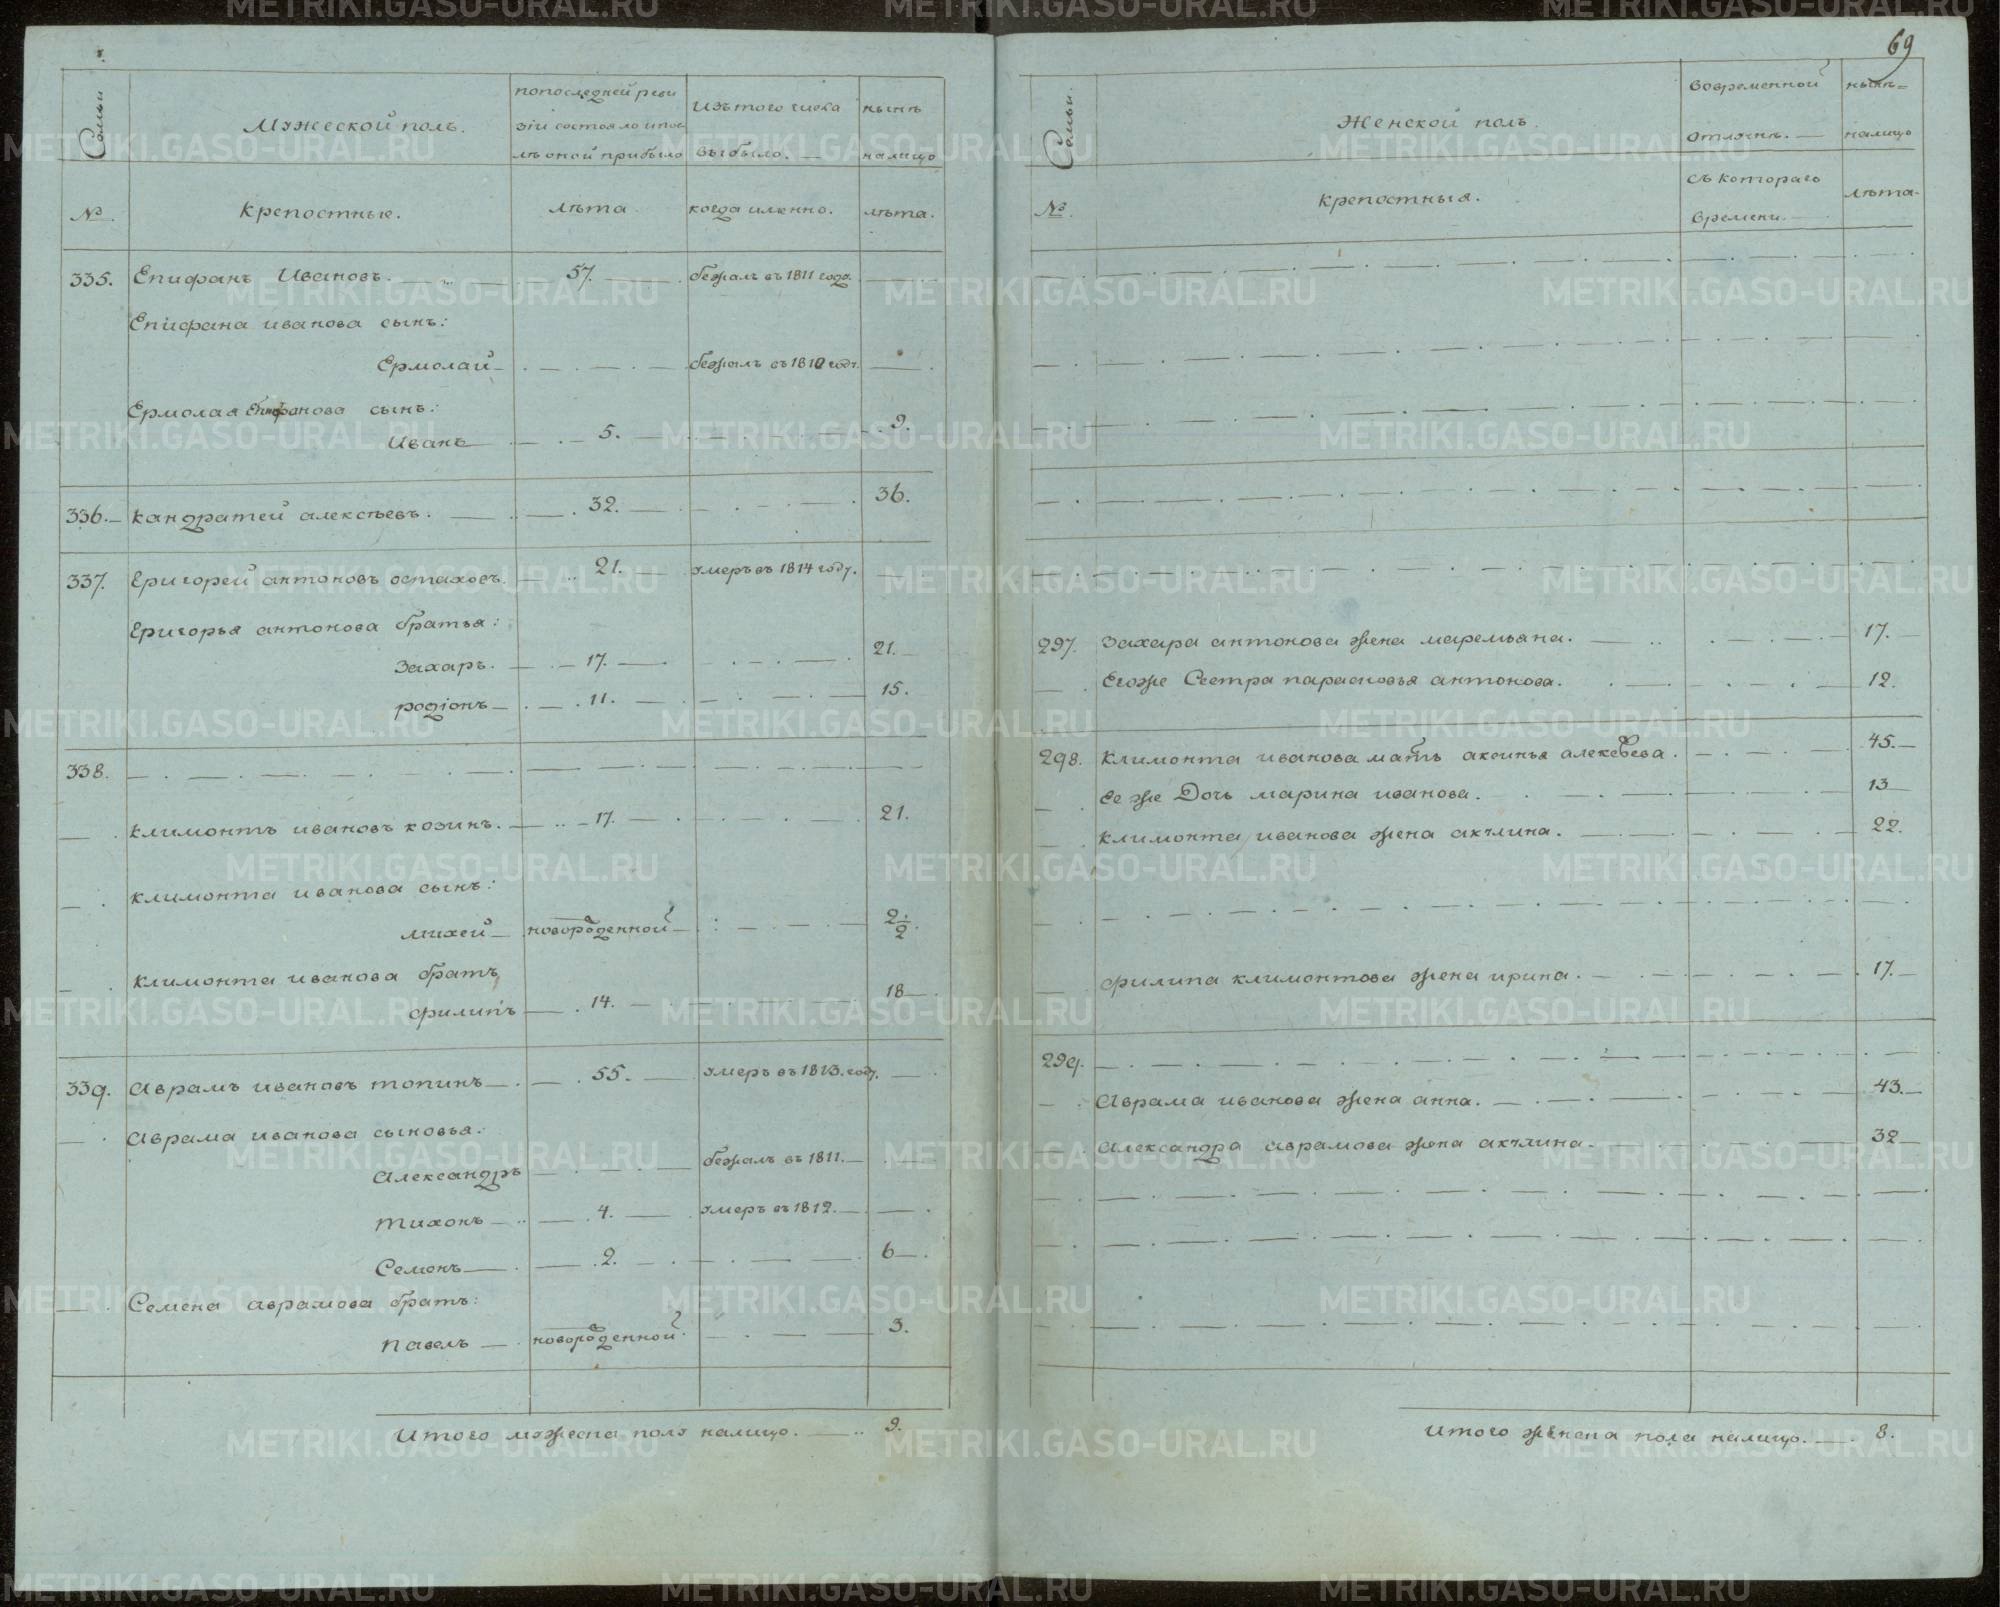 69
Семьи
Мужеской полъ.
попоследней реви
зіи состояло ипос
лѣ оной прибыло
Изътого числа
выбыло. —
нынѣ
налицо
№
Крепостные.
лѣта.
когда именно.
лѣта.
335. Епифанъ Ивановъ. 57. бежалъ въ 1811 году.
Епифана иванова сынъ:
Ермолай — бежалъ въ 1810 году.
Ермолая Епифанова сынъ:
Иванъ — 5. — 9.
336. Кандратей алексѣевъ. — 32. — 36.
337. Григорей антоновъ остаховъ. — 21. умеръ въ 1814 году.
Григорья антонова братья:
Захаръ. — 17. — 21.
родіонъ — 11. — 15.
338.
Климонтъ ивановъ козинъ. — 17. — 21.
Климонта иванова сынъ:
михей — новорожденной — 2/2.
Климонта иванова братъ
филипъ — 14. — 18
339. Аврамъ ивановъ топинъ — 55. — умеръ въ 1813. году.
Аврама иванова сыновья:
Александръ — бежалъ въ 1811. —
Тихонъ — 4. — умеръ въ 1812. —
Семенъ — 2. — 6 —
Семена аврамова братъ:
Павелъ — новорожденной. — 3.
Итого мужеска полу налицо. — 9.
Семьи.
Женской полъ.
Вовременной
отлучкѣ. —
нынѣ=
налицо
№.
крепостныя.
съ котораго
времени. —
лѣта.
297. Захара антонова жена маремьяна. — 17.
Егоже Сестра парасковья антонова. — 12.
298. Климонта иванова мать аксинья алексѣева. — 45. —
Ее же Дочь марина иванова. — 13 —
Климонта иванова жена акулина. — 22.
филипа климонтова жена ирина. — 17. —
299.
Аврама иванова жена анна. — 43. —
Александра аврамова жена акулина. — 32 —
Итого женска пола налицо. — 8.
METRIKI.GASO-URAL.RU